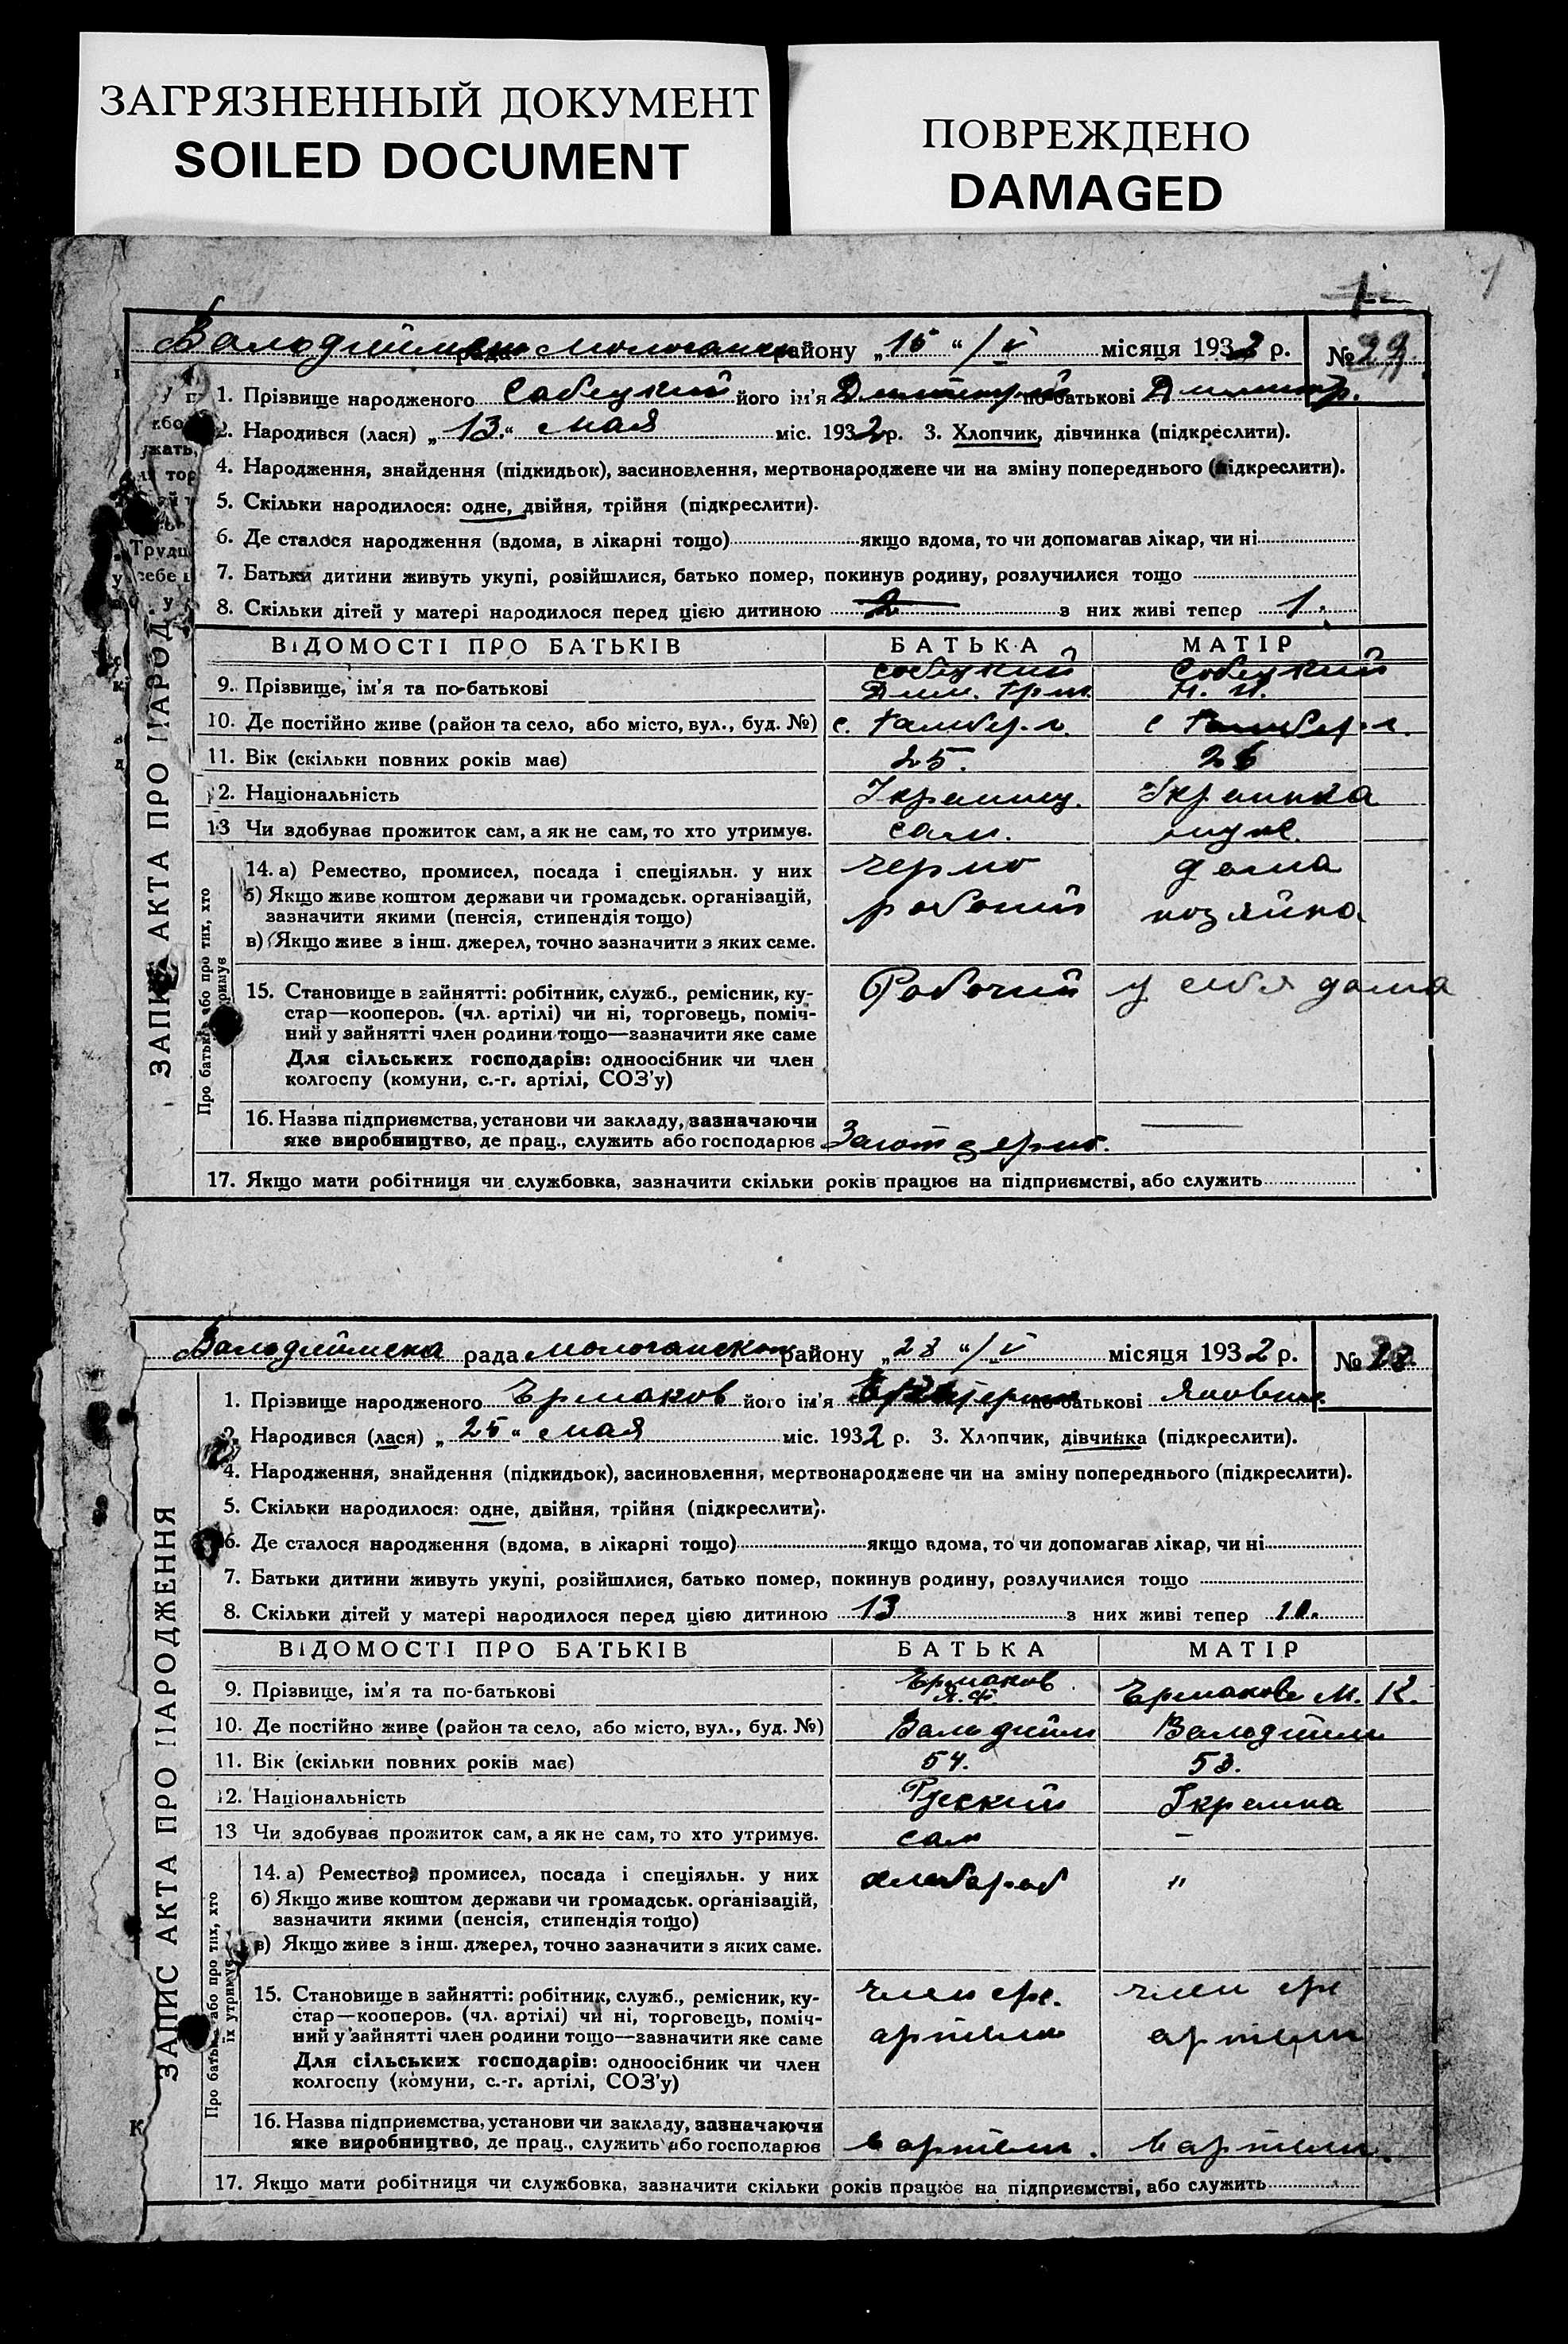 ЗАГРЯЗНЕННЫЙ ДОКУМЕНТ
SOILED DOCUMENT
ПОВРЕЖДЕНО
DAMAGED
1
району „15“ / V місяця 1932 р. №
1. Прізвище народженого Собецкий його ім'я Дмитрий по батькові
2. Народився (лася) „13“ мая міс. 1932 р. 3. Хлопчик, дівчинка (підкреслити).
4. Народження, знайдення (підкидьок), засиновлення, мертвонароджене чи на зміну попереднього (підкреслити).
5. Скільки народилося: одне, двійня, трійня (підкреслити).
6. Де сталося народження (вдома, в лікарні тощо) якщо вдома, то чи допомагав лікар, чи ні
7. Батьки дитини живуть укупі, розійшлися, батько помер, покинув родину, розлучилися тощо
8. Скільки дітей у матері народилося перед цією дитиною 2 з них живі тепер 1.
ВІДОМОСТІ ПРО БАТЬКІВ БАТЬКА МАТІР
9. Прізвище, ім'я та по-батькові Собецкий Собецкий
10. Де постійно живе (район та село, або місто, вул., буд. №)
11. Вік (скільки повних років має) 25. 26
12. Національність Украинец. Украинка
13 Чи здобував прожиток сам, а як не сам, то хто утримує. сам. муже.
14. а) Ремество, промисел, посада і спеціяльн. у них черно дома
б) Якщо живе коштом держави чи громадськ. організацій, рабочий хозяйка
зазначити якими (пенсія, стипендія тощо)
в) Якщо живе з інш. джерел, точно зазначити з яких саме.
15. Становище в зайнятті: робітник, служб., ремісник, ку- Рабочий у себя дома
стар—кооперов. (чл. артілі) чи ні, торговець, поміч-
ний у зайнятті член родини тощо—зазначити яке саме
Для сільських господарів: одноосібник чи член
колгоспу (комуни, с.-г. артілі, СОЗ'у)
16. Назва підприємства, установи чи закладу, зазначаючи
яке виробництво, де прац., служить або господарює Заготзерно. —
17. Якщо мати робітниця чи службовка, зазначити скільки років працює на підприємстві, або служить
ЗАПИС АКТА ПРО НАРОД
рада району „28“ / V місяця 1932 р. № 28
1. Прізвище народженого Ермаков його ім'я по батькові
2. Народився (лася) „25“ мая міс. 1932 р. 3. Хлопчик, дівчинка (підкреслити).
4. Народження, знайдення (підкидьок), засиновлення, мертвонароджене чи на зміну попереднього (підкреслити).
5. Скільки народилося: одне, двійня, трійня (підкреслити).
6. Де сталося народження (вдома, в лікарні тощо) якщо вдома, то чи допомагав лікар, чи ні
7. Батьки дитини живуть укупі, розійшлися, батько помер, покинув родину, розлучилися тощо
8. Скільки дітей у матері народилося перед цією дитиною 13 з них живі тепер 10.
ВІДОМОСТІ ПРО БАТЬКІВ БАТЬКА МАТІР
9. Прізвище, ім'я та по-батькові Ермаков Я. Ф. Ермакова М. К.
10. Де постійно живе (район та село, або місто, вул., буд. №)
11. Вік (скільки повних років має) 54. 53.
12. Національність Русский
13 Чи здобував прожиток сам, а як не сам, то хто утримує. сам –
14. а) Ремество, промисел, посада і спеціяльн. у них хлебороб "
б) Якщо живе коштом держави чи громадськ. організацій,
зазначити якими (пенсія, стипендія тощо)
в) Якщо живе з інш. джерел, точно зазначити з яких саме.
15. Становище в зайнятті: робітник, служб., ремісник, ку- член член
стар—кооперов. (чл. артілі) чи ні, торговець, поміч-
ний у зайнятті член родини тощо—зазначити яке саме артели артели
Для сільських господарів: одноосібник чи член
колгоспу (комуни, с.-г. артілі, СОЗ'у)
16. Назва підприємства, установи чи закладу, зазначаючи
яке виробництво, де прац., служить або господарює в артели. в артели.
17. Якщо мати робітниця чи службовка, зазначити скільки років працює на підприємстві, або служить
ЗАПИС АКТА ПРО НАРОДЖЕННЯ